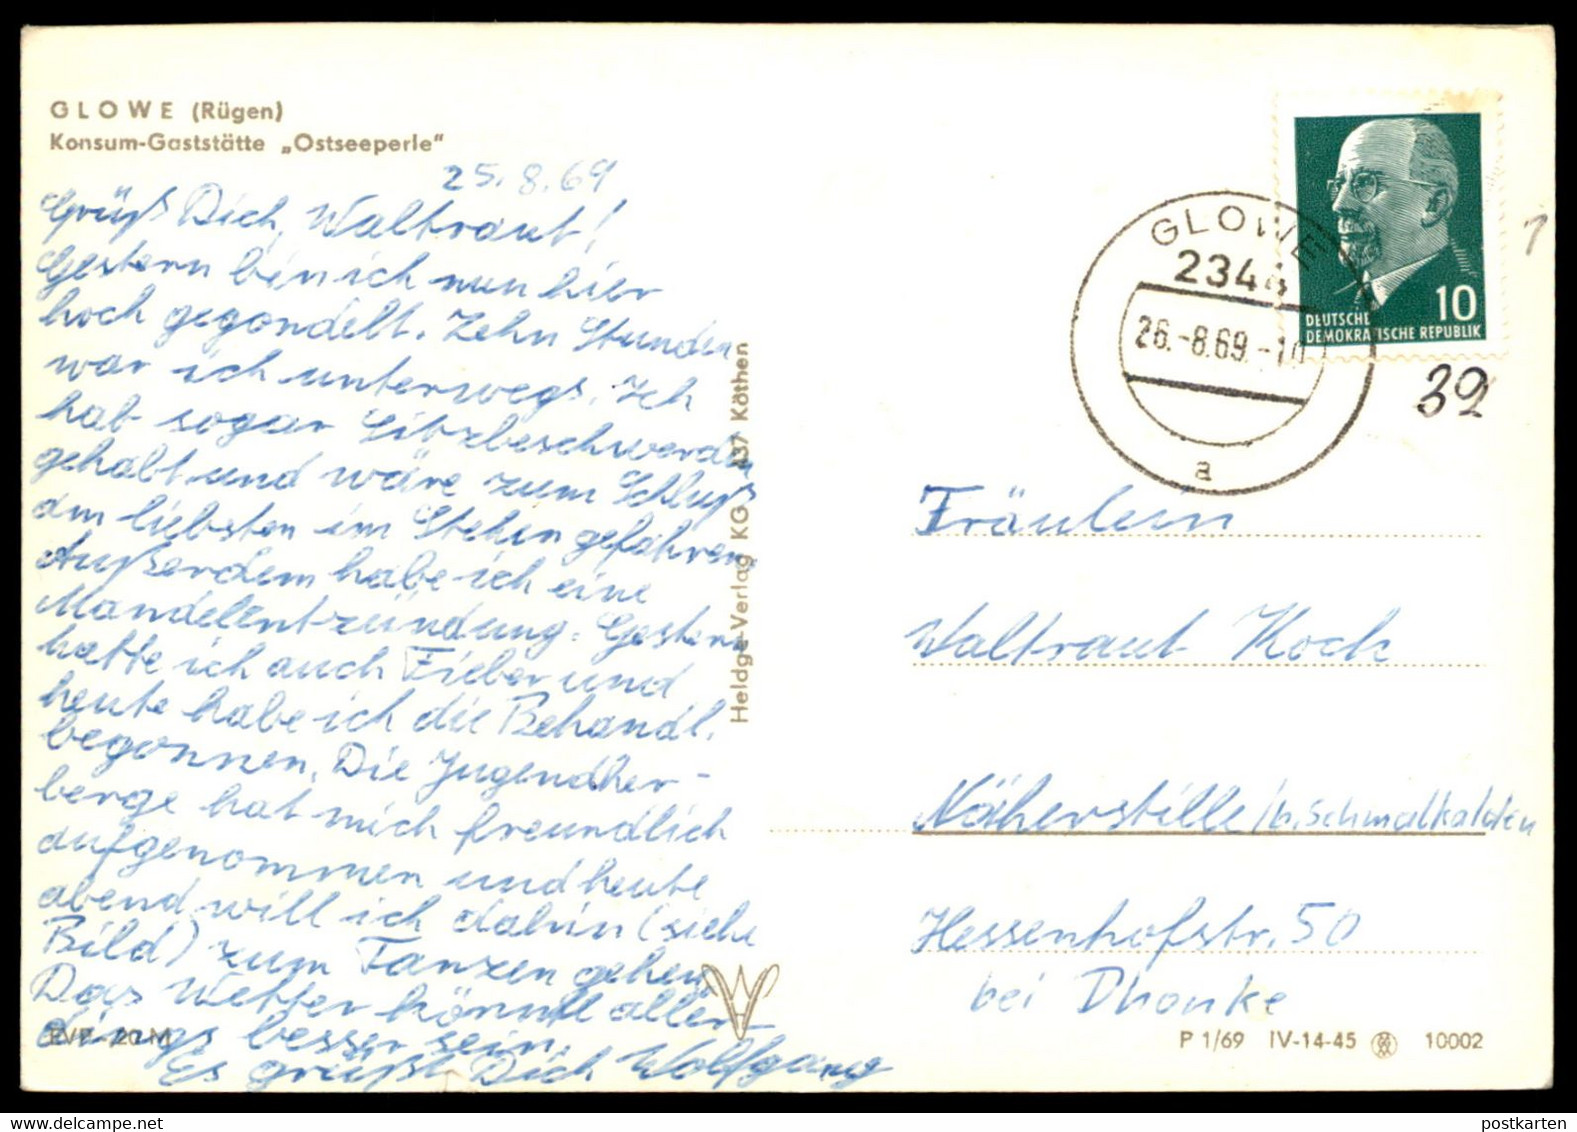 GLOWE (Rügen)
Konsum-Gaststätte „Ostseeperle“
25.8.69
Grüß Dich, Waltraut!
Gestern bin ich nun hier
hoch gegondelt. Zehn Stunden
war ich unterwegs. Ich
hab sogar Sitzbeschwerden
gehabt und wäre zum Schluß
am liebsten im Stehen gefahren.
Außerdem habe ich eine
Mandelentzündung. Gestern
hatte ich auch Fieber und
heute habe ich die Behandl.
begonnen. Die Jugendher-
berge hat mich freundlich
aufgenommen und heute
abend will ich dahin (siehe
Bild) zum Tanzen gehen.
Das Wetter könnte aller-
dings besser sein.
Es grüßt Dich Wolfgang
EVP -,20 M
Heldge-Verlag KG 437 Köthen
GLOWE
2344
26.-8.69.-10
a
10
DEUTSCHE
DEMOKRATISCHE REPUBLIK
39
Fräulein
Waltraut Kock
Näherstille/b. Schmalkalden
Hessenhofstr. 50
bei Dhonke
P 1/69 IV-14-45 10002
postkarten